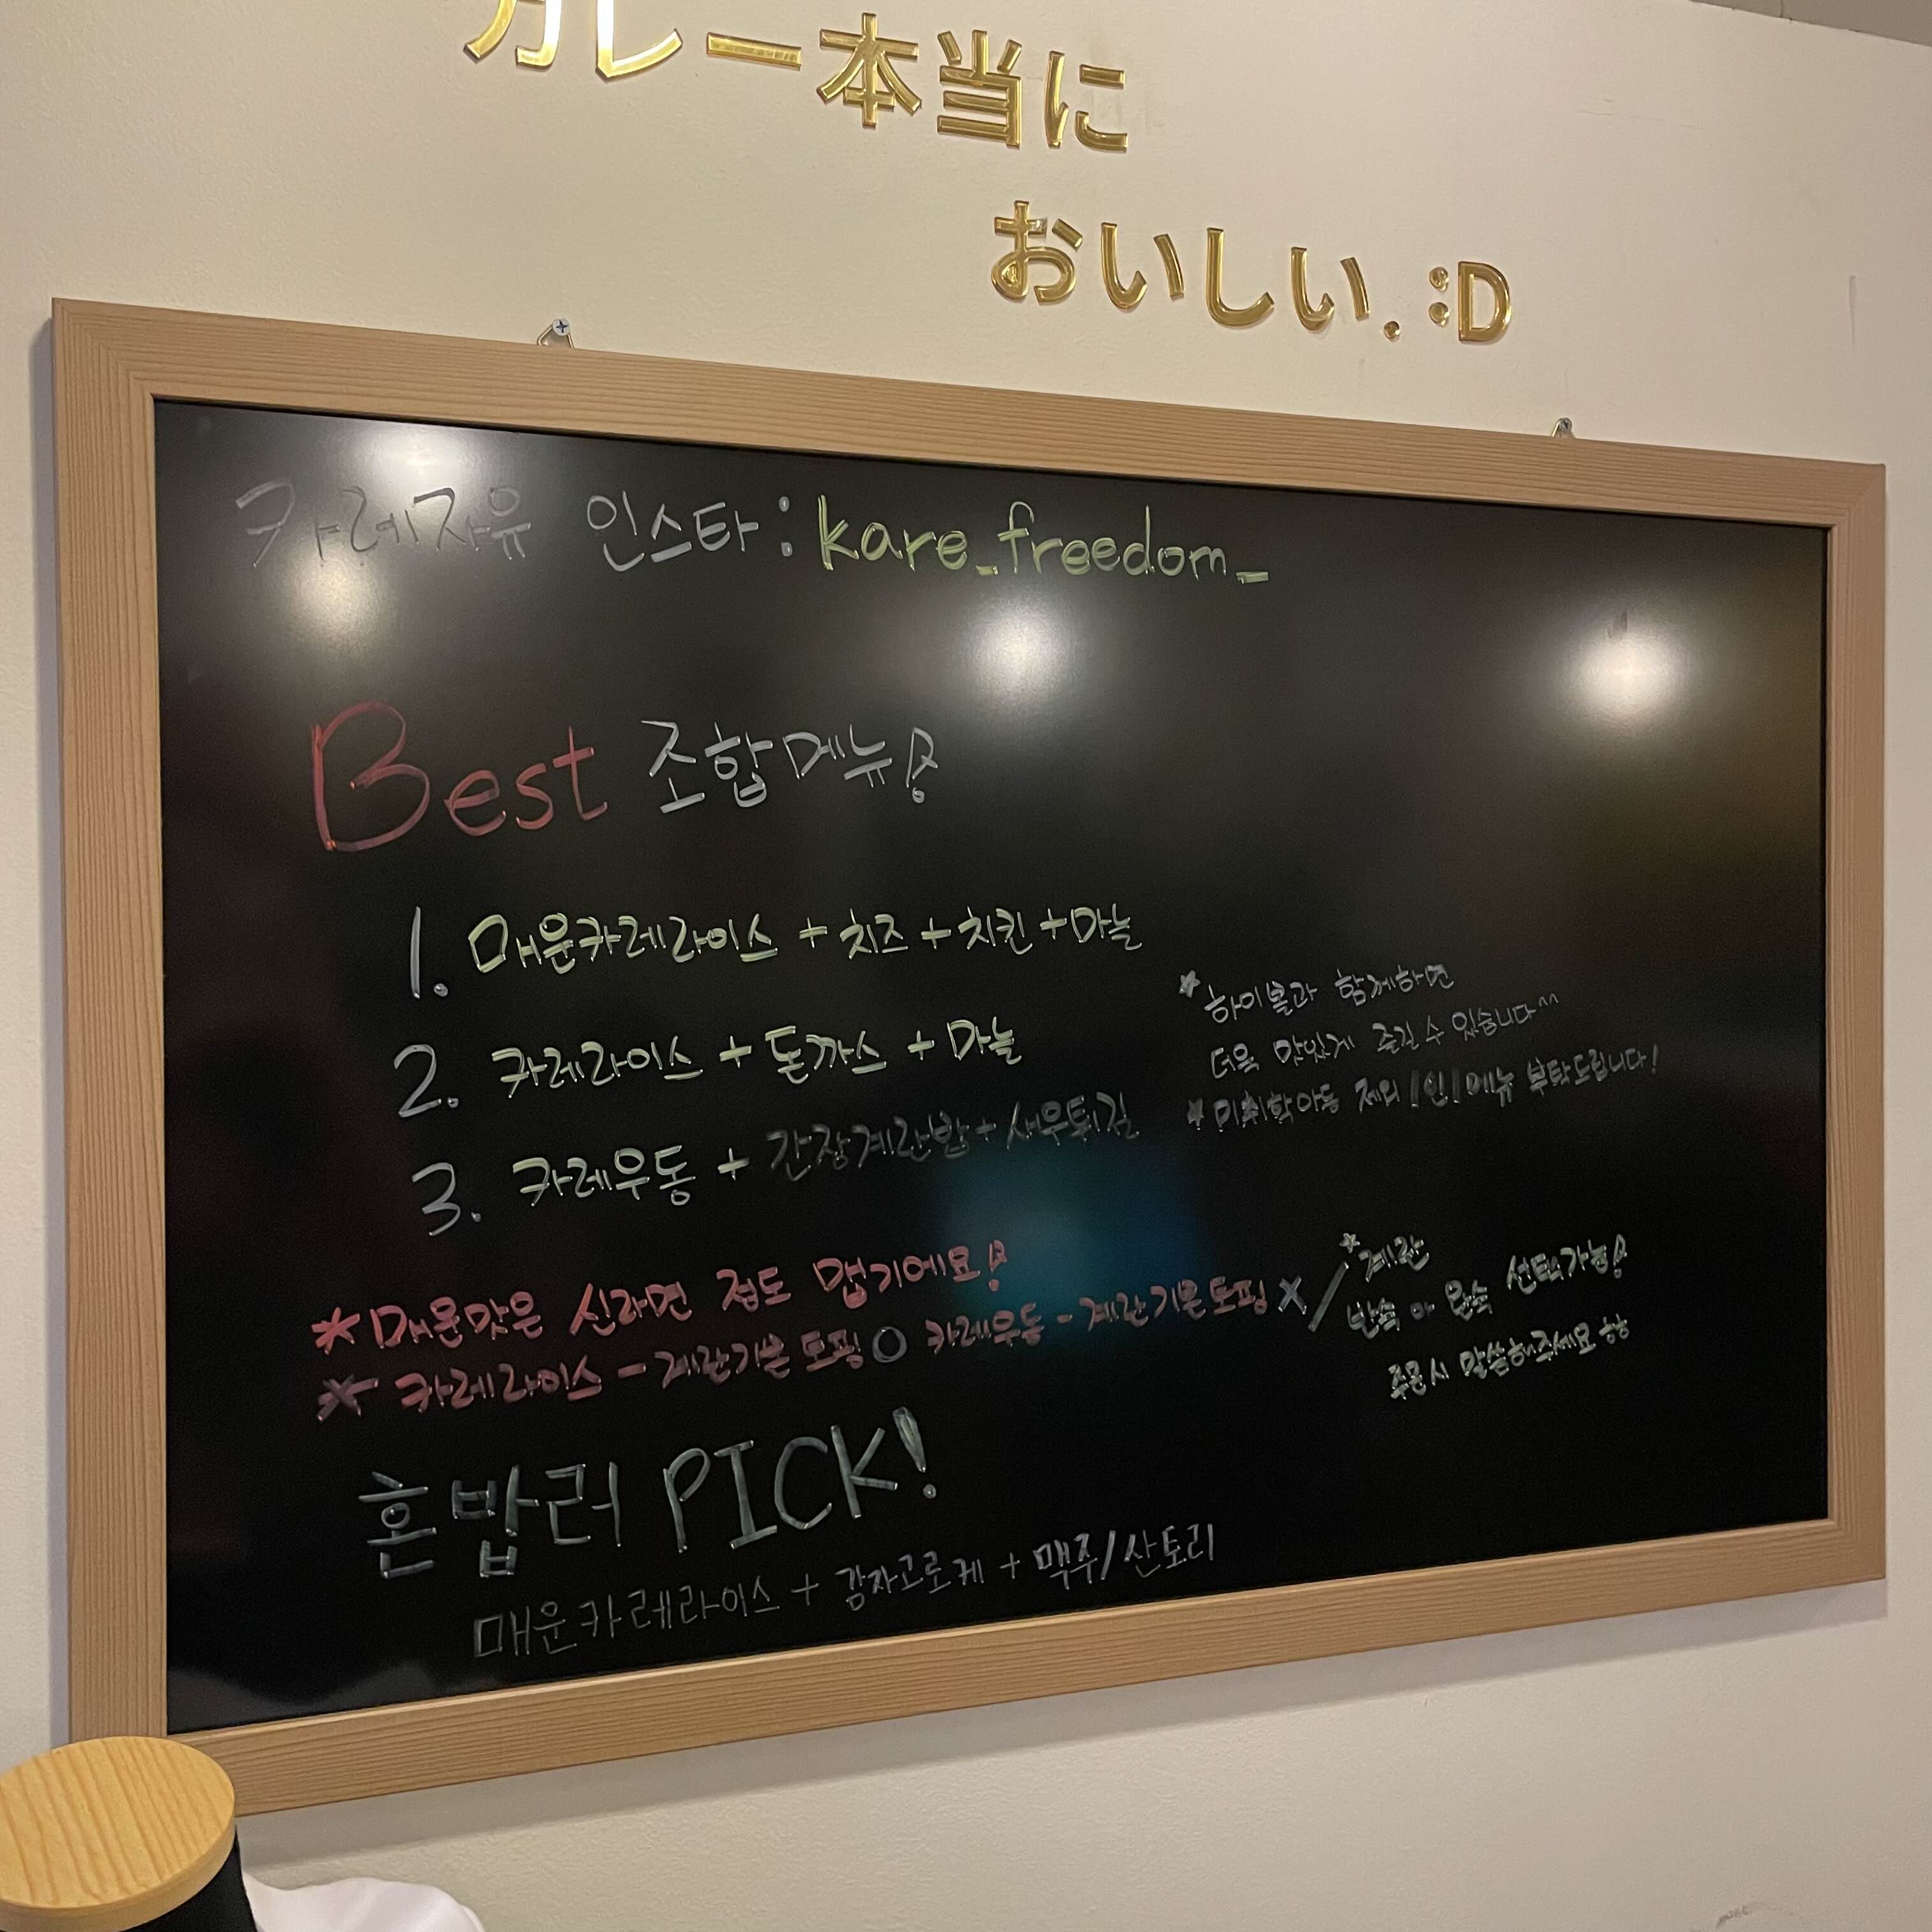 カレー本当に
おいしい. :D
카레자유 인스타 : kare_freedom_
Best 조합메뉴!
1. 매운카레라이스 + 치즈 + 치킨 + 마늘
2. 카레라이스 + 돈까스 + 마늘
3. 카레우동 + 간장계란밥 + 새우튀김
* 하이볼과 함께하면
더욱 맛있게 즐길 수 있습니다^^
* 미취학아동 제외 1인 1메뉴 부탁드립니다!
* 매운맛은 신라면 정도 맵기에요!
* 카레라이스 - 계란기본토핑 O 카레우동 - 계란기본토핑 X /
* 계란
반숙 or 완숙 선택가능!
주문시 말씀해주세요
혼밥러 PICK!
매운카레라이스 + 감자고로케 + 맥주/산토리